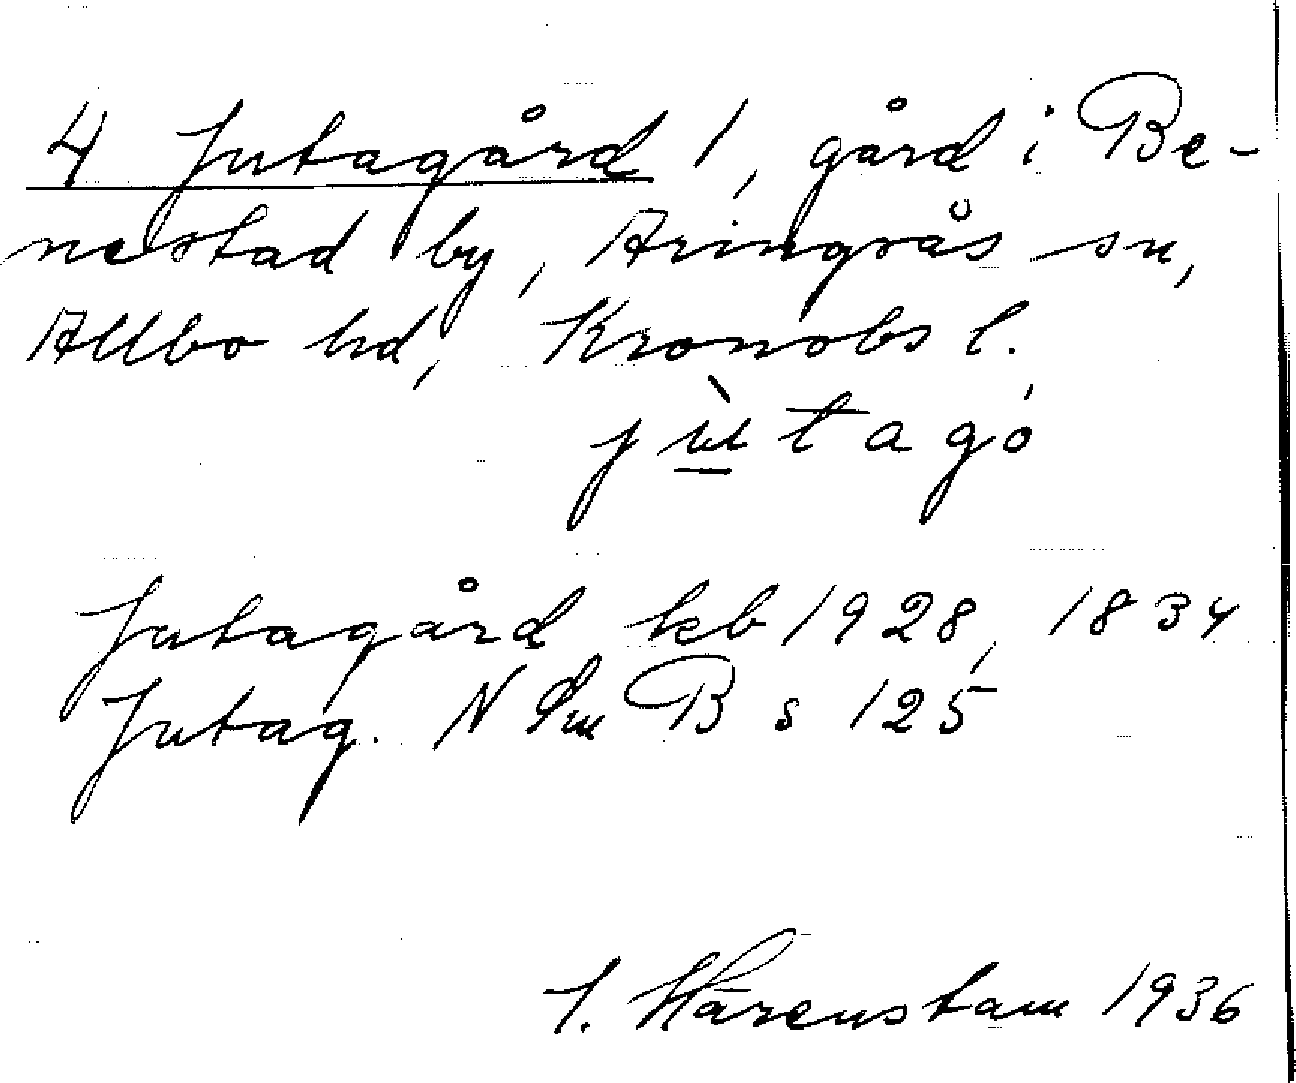 4 Jutagård 1, gård i Be-
nestad by, Aringsås sn,
Allbo hd, Kronobs l.
jùtagó
Jutagård kb 1928, 1834
Jutag. N Sm B s 125
I. Härenstam 1936